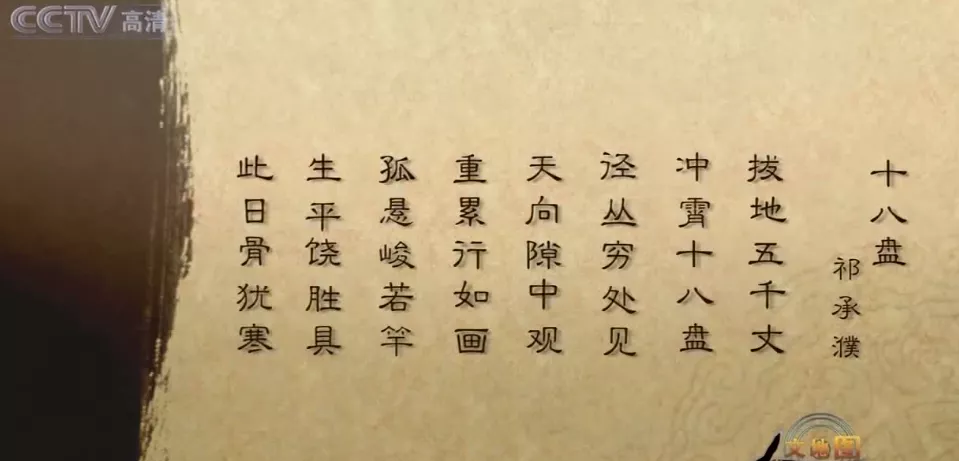 CCTV高清
十八盘
祁承濮
拔地五千丈
冲霄十八盘
径丛穷处见
天向隙中观
重累行如画
孤悬峻若竿
生平饶胜具
此日骨犹寒
文地图